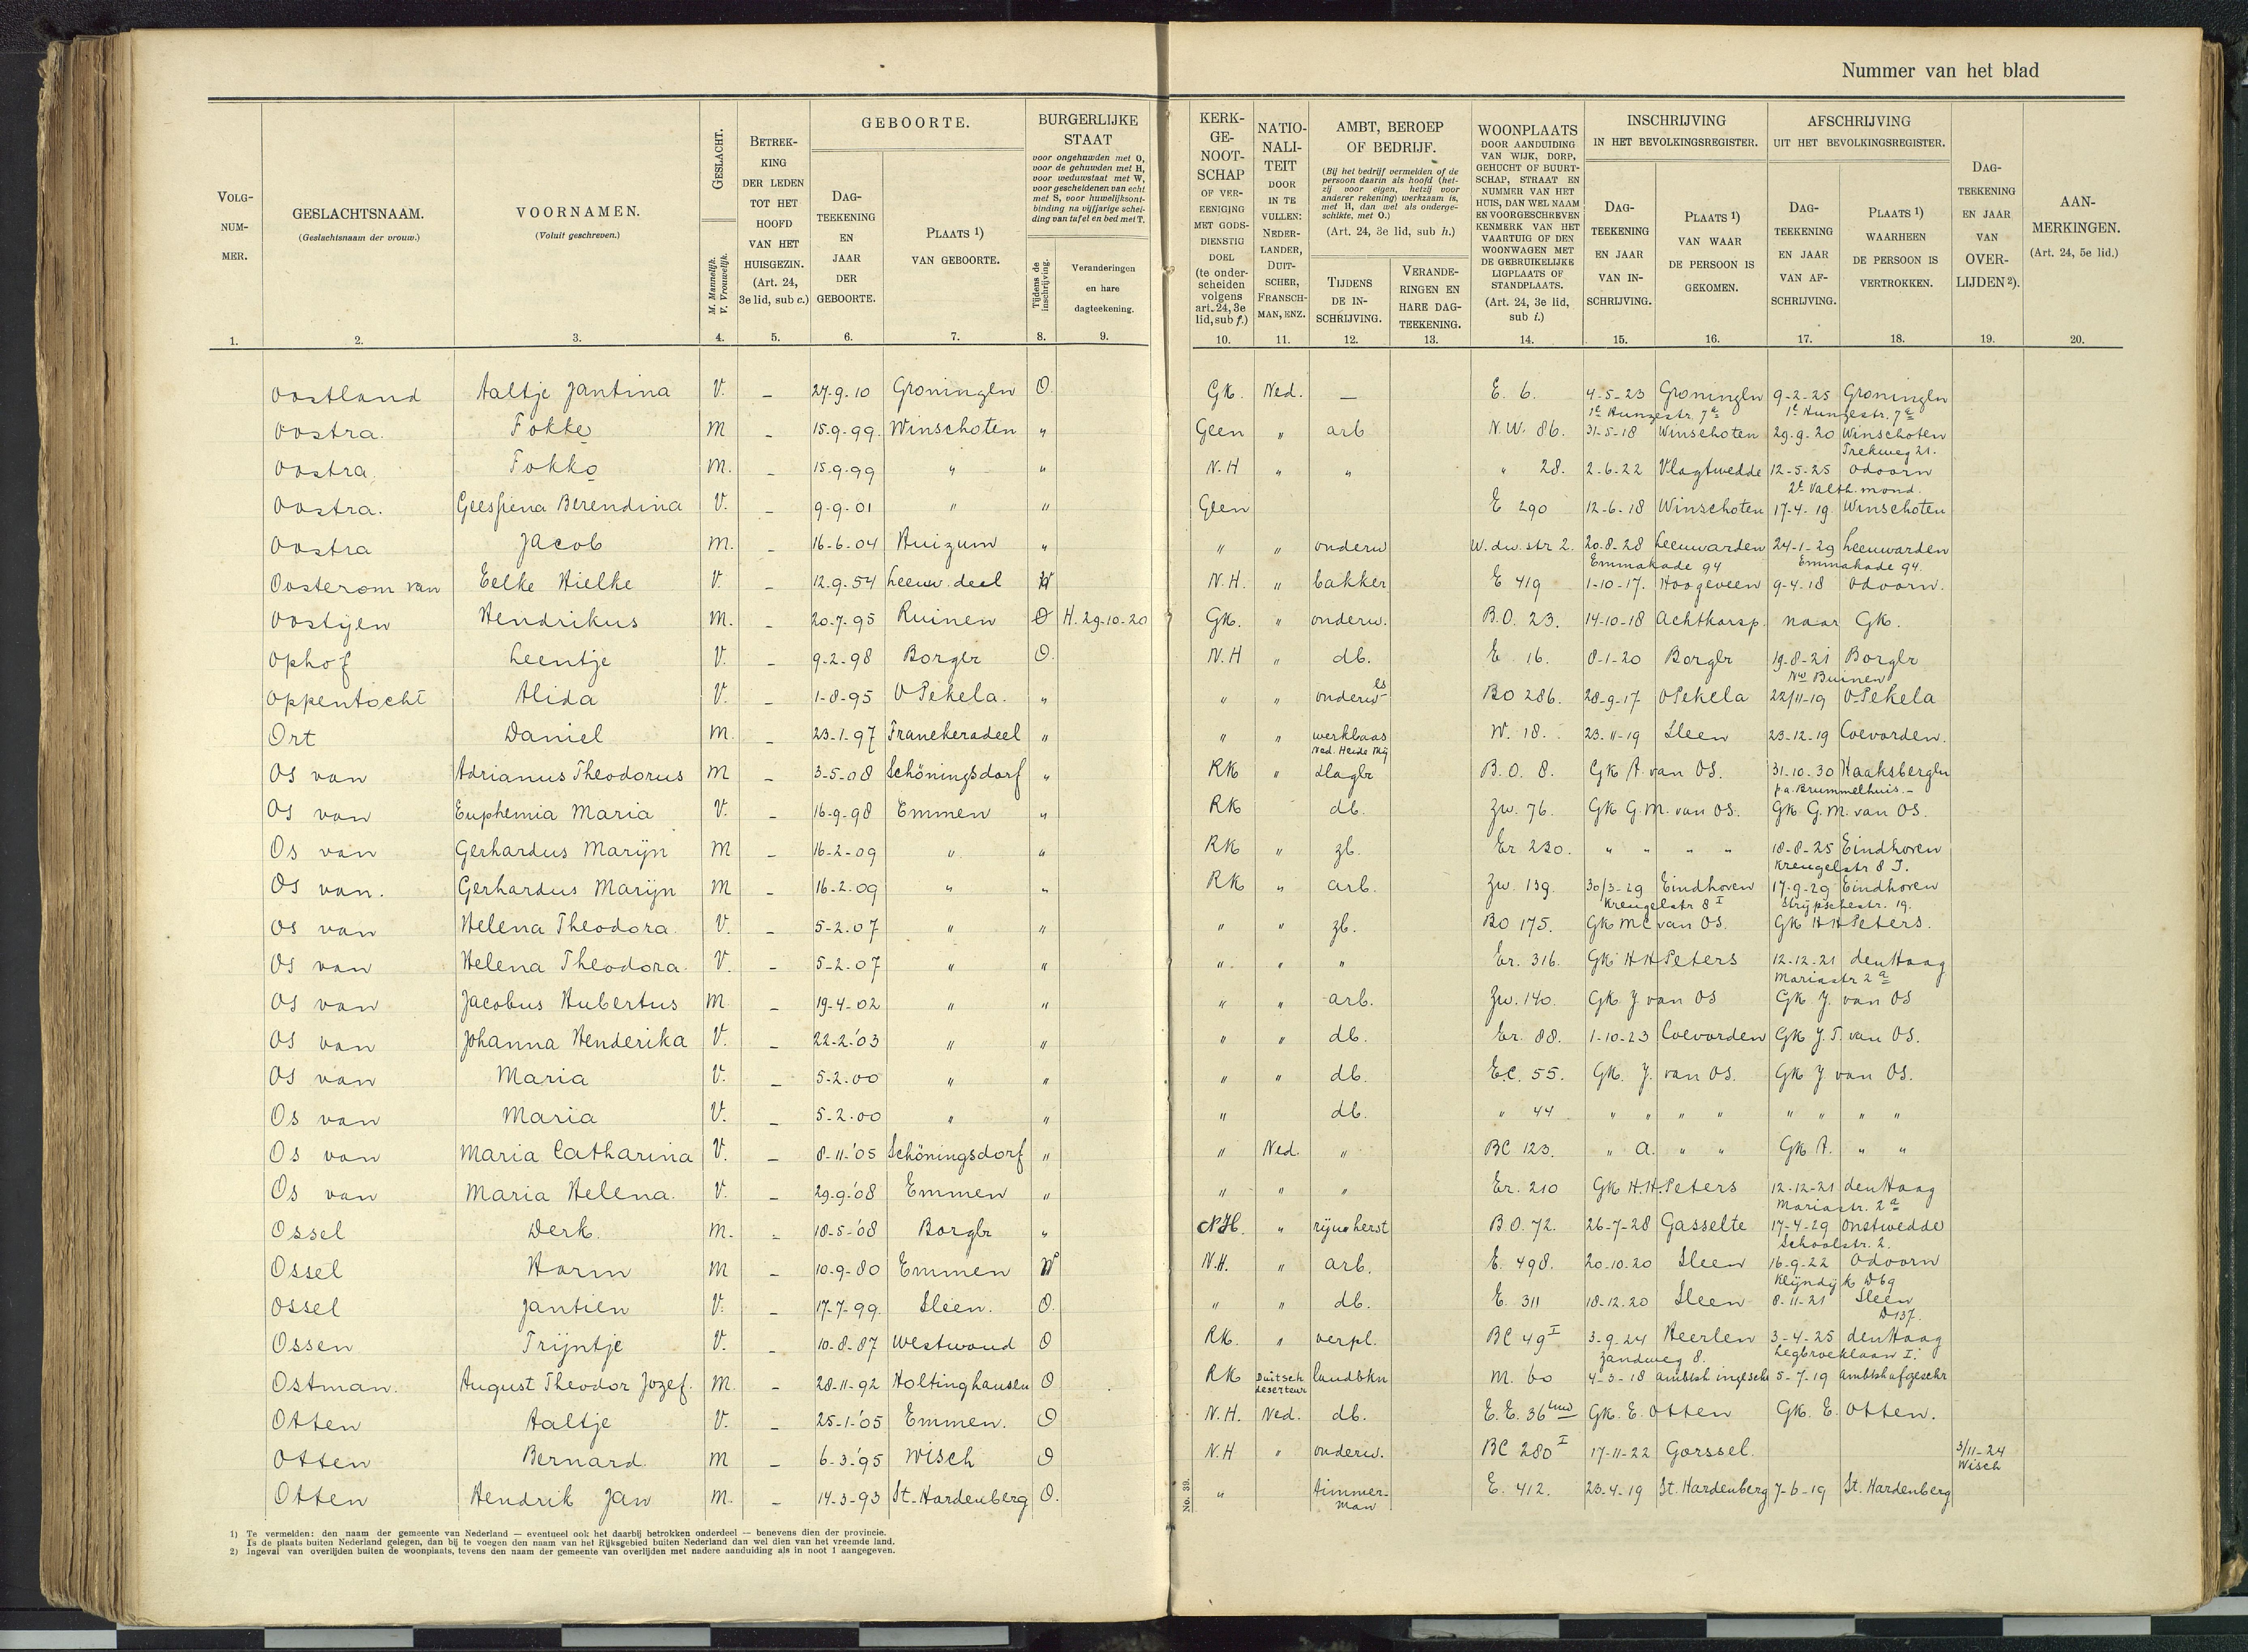 Nummer van het blad
VOLGNUMMER. 1.
GESLACHTSNAAM. (Geslachtsnaam der vrouw.) 2.
VOORNAMEN. (Voluit geschreven.) 3.
GESLACHT. M. Mannelijk. V. Vrouwelijk. 4.
BETREKKING DER LEDEN TOT HET HOOFD VAN HET HUISGEZIN. (Art. 24, 3e lid, sub c.) 5.
GEBOORTE.
DAGTEEKENING EN JAAR DER GEBOORTE. 6.
PLAATS 1) VAN GEBOORTE. 7.
BURGERLIJKE STAAT
voor ongehuwden met O, voor de gehuwden met H, voor weduwstaat met W, voor gescheidenen van echt met S, voor huwelijksontbinding na vijfjarige scheiding van tafel en bed met T.
Tijdens de inschrijving. 8.
Veranderingen en hare dagteekening. 9.
KERKGENOOTSCHAP OF VEREENIGING MET GODSDIENSTIG DOEL (te onderscheiden volgens art. 24, 3e lid, sub f.) 10.
NATIONALITEIT DOOR IN TE VULLEN: NEDERLANDER, DUITSCHER, FRANSCHMAN, ENZ. 11.
AMBT, BEROEP OF BEDRIJF.
(Bij het bedrijf vermelden of de persoon daarin als hoofd (hetzij voor eigen, hetzij voor anderer rekening) werkzaam is, met H, dan wel als ondergeschikte, met O.)
(Art. 24, 3e lid, sub h.)
TIJDENS DE INSCHRIJVING. 12.
VERANDERINGEN EN HARE DAGTEEKENING. 13.
WOONPLAATS DOOR AANDUIDING VAN WIJK, DORP, GEHUCHT OF BUURTSCHAP, STRAAT EN NUMMER VAN HET HUIS, DAN WEL NAAM EN VOORGESCHREVEN KENMERK VAN HET VAARTUIG OF DEN WOONWAGEN MET DE GEBRUIKELIJKE LIGPLAATS OF STANDPLAATS. (Art. 24, 3e lid, sub i.) 14.
INSCHRIJVING IN HET BEVOLKINGSREGISTER.
DAGTEEKENING EN JAAR VAN INSCHRIJVING. 15.
PLAATS 1) VAN WAAR DE PERSOON IS GEKOMEN. 16.
AFSCHRIJVING UIT HET BEVOLKINGSREGISTER.
DAGTEEKENING EN JAAR VAN AFSCHRIJVING. 17.
PLAATS 1) WAARHEEN DE PERSOON IS VERTROKKEN. 18.
DAGTEEKENING EN JAAR VAN OVERLIJDEN 2). 19.
AANMERKINGEN. (Art. 24, 5e lid.) 20.
Oostland Aaltje Jantina V. – 27-9-10 Groningen O. GK. Ned. — E. 6. 4-5-23 Groningen 9-2-25 Groningen
1e Hunzestr. 7a 1e Hunzestr. 7a
Oostra. Fokke M – 15-9-99. Winschoten " Geen " arb N.W. 86. 31-5-18 Winschoten 29-9-20 Winschoten
Trekweg 21.
Oostra. Fokko M. – 15-9-99 " " N.H " " " 28. 2-6-22 Vlagtwedde 12-5-25 Odoorn
2e Valth. mond.
Oostra. Geessiena Berendina V. – 9-9-01 " " Geen E 290 12-6-18 Winschoten 17-4-19 Winschoten
Oostra Jacob M. – 16-6-04 Huizum " " " onderw W.dw.str 2. 20-8-28 Leeuwarden 24-1-29 Leeuwarden
Emmakade 94 Emmakade 94.
Oosterom van Eelke Hielke V. – 12-9-54 Leeuw.deel W N.H. " bakker E 419 1-10-17. Hoogeveen 9-4-18 Odoorn.
Oostijen Hendrikus M. – 20-7-95 Ruinen O H. 29-10-20 GK. " onderw. B.O. 23. 14-10-18 Achtkarsp. naar GK.
Ophof Leentje V. – 9-2-98 Borger O. N.H " db. E. 16. 8-1-20 Borger 19-8-21 Borger
Nw Buinen
Oppentocht Alida V. – 1-8-95 OPekela. " " " onderw es BO 286. 28-9-17 OPekela 22/11-19 O-Pekela
Ort Daniel M. – 23-1-97 Franekeradeel " " " werkbaas W. 18. 23-11-19 Sleen 23-12-19 Coevorden.
Ned. Heide Mij
Os van Adrianus Theodorus M – 3-5-08 Schöningsdorf " RK " slager B.O. 8. GK A. van OS. 31-10-30 Haaksbergen
p.a. Brummelhuis.–
Os van Euphemia Maria V. – 16-9-98 Emmen " RK db. Zw. 76. GK G.M. van OS. GK G.M. van OS.
Os van Gerhardus Marijn M – 16-2-09 " " RK " zb. Er. 230. " " " " 18-8-25 Eindhoven
Kreugelstr 8 I.
Os van. Gerhardus Marijn M – 16-2-09 " " RK " arb. Zw. 139. 30/3-29 Eindhoven 17-9-29 Eindhoven
Kreugelstr 8 I Strijpschestr. 19.
Os van Helena Theodora. V. – 5-2-07 " " " " zb. BO 175. GK MC van OS. GK HH Peters.
Os van Helena Theodora. V. – 5-2-07 " " " " " Er. 316. GK HH Peters 12-12-21 den Haag
Mariastr 2a
Os van Jacobus Hubertus M. – 19-4-02 " " " " arb. Zw. 140. GK J van OS GK J. van OS
Os van Johanna Henderika V. – 22-2-'03 " " " " db. Er. 88. 1-10-23 Coevorden GK J.T. van OS.
Os van Maria V. – 5-2-00 " " " " db. E.C. 55. GK. J. van OS. GK J van OS.
Os van Maria V. – 5-2-00 " " " db. " 44 " " " " " " " "
Os van Maria Catharina V. – 8-11-'05 Schöningsdorf " " Ned. " BC 123. " A. " " GK A. " "
Os van Maria Helena. V. – 29-9-'08 Emmen " " " " Er. 210 GK H.H. Peters 12-12-21 den Haag
Mariastr. 2a
Ossel Derk. M. – 18-5-'08 Borger " NH. " B.O. 72. 26-7-28 Gasselte 17-4-29 Onstwedde
Schoolstr. 2.
Ossel Harm M – 10-9-80 Emmen W N.H. " arb. E. 498. 20-10-20 Sleen 16-9-22 Odoorn
Klijndijk D69
Ossel Jantien V. – 17-7-99. Sleen. O. " " db. E. 311 18-12-20 Sleen 8-11-21 Sleen
D137.
Ossen Trijntje V. – 10-8-87 Westwoud O RK. " verpl. BC 49 I 3-9-24 Heerlen 3-4-25 den Haag
Zandweg 8.
Ostman. August Theodor Jozef. M. – 28-11-92 Holtinghausen O RK Duitsch landbkn M. 60 4-3-18 ambtsh ingeschr 5-7-19 ambtsh afgeschr
deserteur
Otten Aaltje V. – 25-1-'05 Emmen. O N.H. Ned. db. E.E. 36 GK. E. Otten GK. E. Otten.
Otten Bernard. M – 6-3-'95 Wisch O N.H " onderw. BC 280 I 17-11-22 Gorssel. 3/11-24
Wisch
Otten Hendrik Jan M. – 14-3-93 St.-Hardenberg O. " timmer- E. 412. 23-4-19 St. Hardenberg 7-6-19 St. Hardenberg
man
No. 39.
1) Te vermelden: den naam der gemeente van Nederland — eventueel ook het daarbij betrokken onderdeel — benevens dien der provincie.
Is de plaats buiten Nederland gelegen, dan bij te voegen den naam van het Rijksgebied buiten Nederland dan wel dien van het vreemde land.
2) Ingeval van overlijden buiten de woonplaats, tevens den naam der gemeente van overlijden met nadere aanduiding als in noot 1 aangegeven.